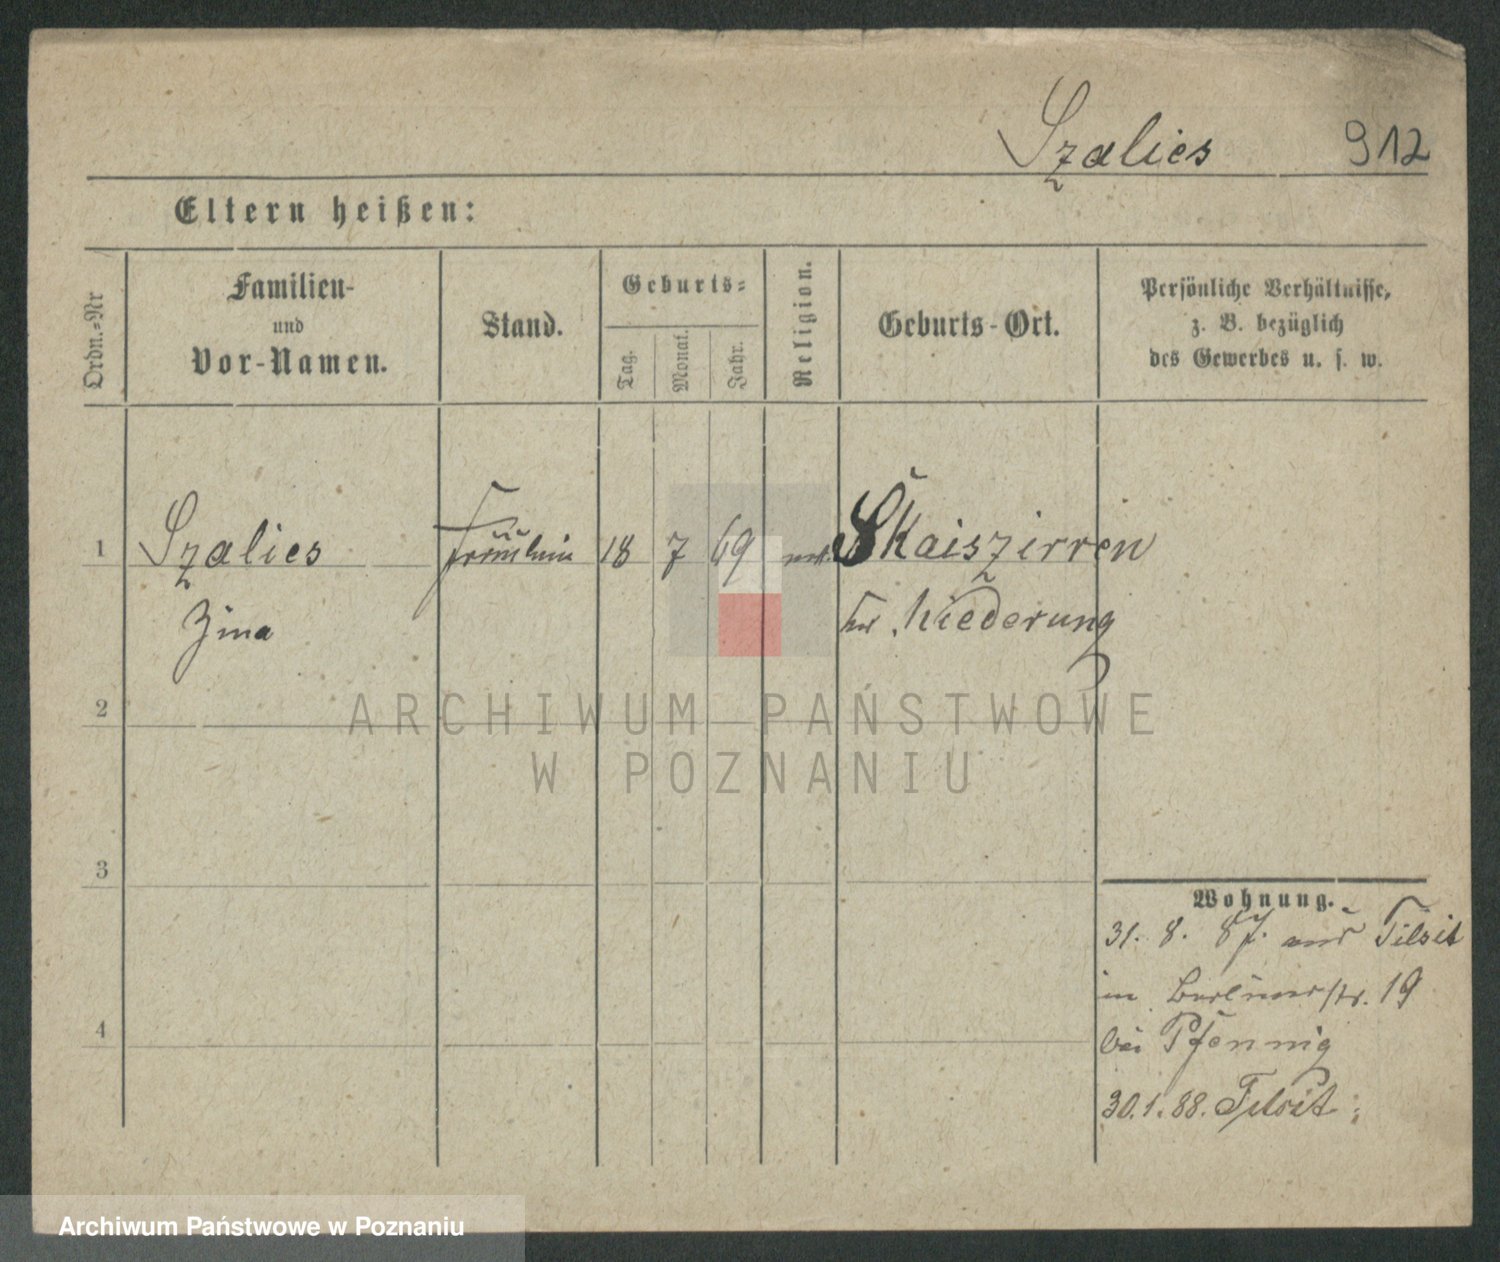 Szalies 912
Eltern heißen:
Ordn.=Nr
Familien-
und
Vor-Namen.
Stand.
Geburts=
Tag.
Monat.
Jahr.
Religion.
Geburts-Ort.
Persönliche Verhältnisse,
z. B. bezüglich
des Gewerbes u. s. w.
1 Szalies Fräulein 18 7 69 Skaiszirren
Zina Niederung
2
3
4
Wohnung.
31. 8. 87. aus Tilsit
in Berlinerstr. 19
bei Pfennig
30. 1. 88. Tilsit
ARCHIWUM PAŃSTWOWE
W POZNANIU
Archiwum Państwowe w Poznaniu